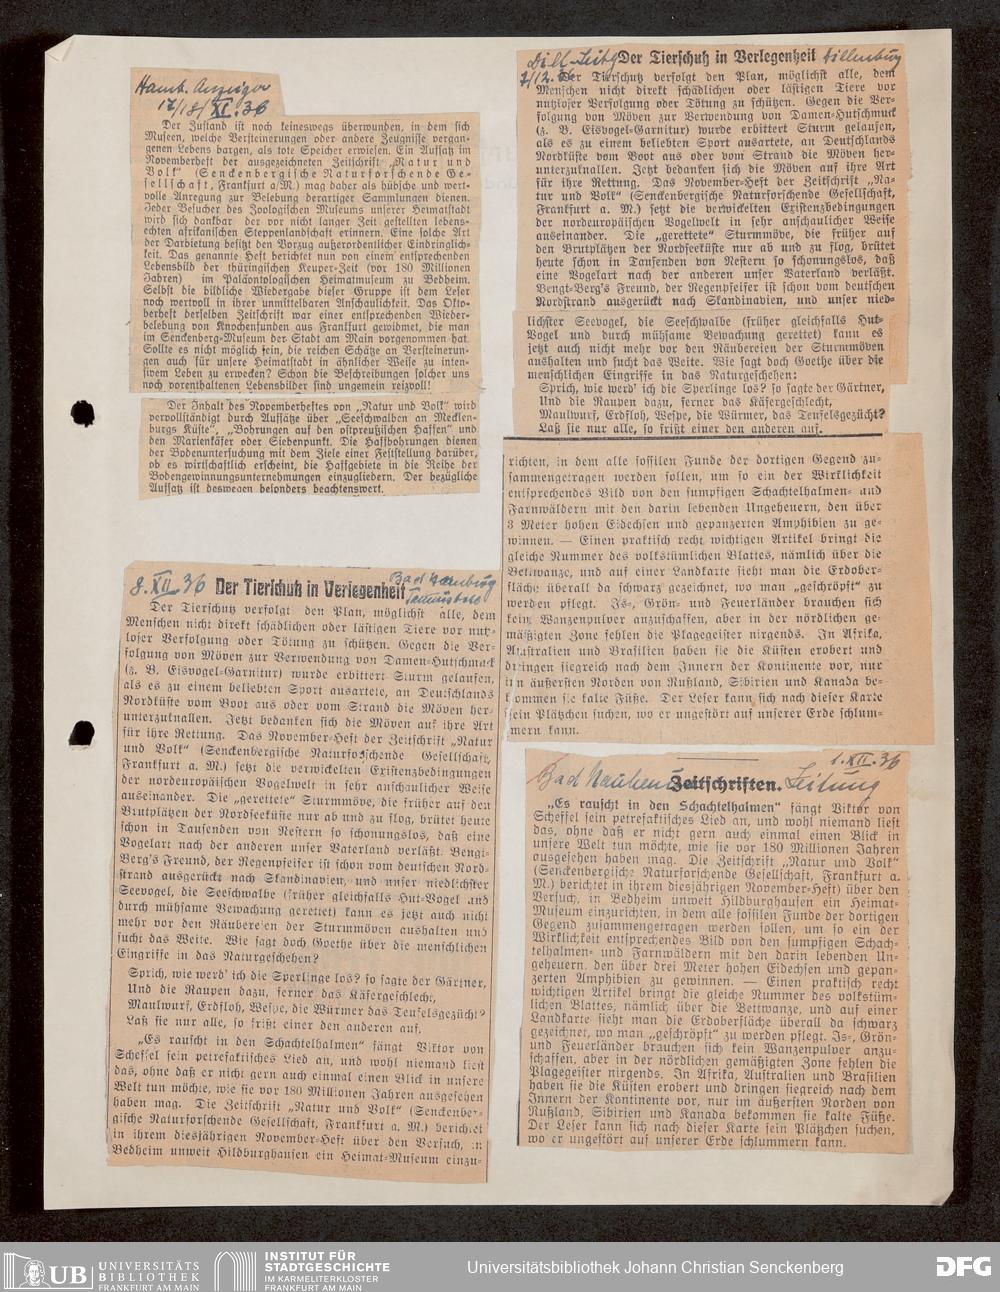 Hamb. Anzeiger
17/18/XI. 36
Der Zustand ist noch keineswegs überwunden, in dem sich
Museen, welche Versteinerungen oder andere Zeugnisse vergan-
genen Lebens bargen, als tote Speicher erwiesen. Ein Aufsatz im
Novemberheft der ausgezeichneten Zeitschrift „Natur und
Volk“ (Senckenbergische Naturforschende Ge-
sellschaft, Frankfurt a/M.) mag daher als hübsche und wert-
volle Anregung zur Belebung derartiger Sammlungen dienen.
Jeder Besucher des Zoologischen Museums unserer Heimatstadt
wird sich dankbar der vor nicht langer Zeit gestellten lebens-
echten afrikanischen Steppenlandschaft erinnern. Eine solche Art
der Darbietung besitzt den Vorzug außerordentlicher Eindringlich-
keit. Das genannte Heft berichtet nun von einem entsprechenden
Lebensbild der thüringischen Keuper-Zeit (vor 180 Millionen
Jahren) im Paläontologischen Heimatmuseum zu Bedheim.
Selbst die bildliche Wiedergabe dieser Gruppe ist dem Leser
noch wertvoll in ihrer unmittelbaren Anschaulichkeit. Das Okto-
berheft derselben Zeitschrift war einer entsprechenden Wieder-
belebung von Knochenfunden aus Frankfurt gewidmet, die man
im Senckenberg-Museum der Stadt am Main vorgenommen hat.
Sollte es nicht möglich sein, die reichen Schätze an Versteinerun-
gen auch für unsere Heimatstadt in ähnlicher Weise zu inten-
sivem Leben zu erwecken? Schon die Beschreibungen solcher uns
noch vorenthaltenen Lebensbilder sind ungemein reizvoll!
Der Inhalt des Novemberheftes von „Natur und Volk“ wird
vervollständigt durch Aufsätze über „Seeschwalben an Mecklen-
burgs Küste“, „Bohrungen auf den ostpreußischen Haffen“ und
den Marienkäfer oder Siebenpunkt. Die Haffbohrungen dienen
der Bodenuntersuchung mit dem Ziele einer Feststellung darüber,
ob es wirtschaftlich erscheint, die Haffgebiete in die Reihe der
Bodengewinnungsunternehmungen einzugliedern. Der bezügliche
Aufsatz ist deswegen besonders beachtenswert.
8. XII 36 Der Tierschutz in Verlegenheit Bad Homburg
Taunusbote
Der Tierschutz verfolgt den Plan, möglichst alle, dem
Menschen nicht direkt schädlichen oder lästigen Tiere vor nutz-
loser Verfolgung oder Tötung zu schützen. Gegen die Ver-
folgung von Möven zur Verwendung von Damen-Hutschmuck
(z. B. Eisvogel-Garnitur) wurde erbittert Sturm gelaufen,
als es zu einem beliebten Sport ausartete, an Deutschlands
Nordküste vom Boot aus oder vom Strand die Möven her-
unterzuknallen. Jetzt bedanken sich die Möven auf ihre Art
für ihre Rettung. Das November-Heft der Zeitschrift „Natur
und Volk“ (Senckenbergische Naturforschende Gesellschaft,
Frankfurt a. M.) setzt die verwickelten Existenzbedingungen
der nordeuropäischen Vogelwelt in sehr anschaulicher Weise
auseinander. Die „gerettete“ Sturmmöve, die früher auf den
Brutplätzen der Nordseeküste nur ab und zu flog, brütet heute
schon in Tausenden von Nestern so schonungslos, daß eine
Vogelart nach der anderen unser Vaterland verläßt. Bengt-
Berg's Freund, der Regenpfeifer ist schon vom deutschen Nord-
strand ausgerückt nach Skandinavien, und unser niedlichster
Seevogel, die Seeschwalbe (früher gleichfalls Hut-Vogel und
durch mühsame Bewachung gerettet) kann es jetzt auch nicht
mehr vor den Räubereien der Sturmmöven aushalten und
sucht das Weite. Wie sagt doch Goethe über die menschlichen
Eingriffe in das Naturgeschehen?
Sprich, wie werd' ich die Sperlinge los? so sagte der Gärtner,
Und die Raupen dazu, ferner das Käfergeschlecht,
Maulwurf, Erdfloh, Wespe, die Würmer das Teufelsgezücht?
Laß sie nur alle, so frißt einer den anderen auf.
„Es rauscht in den Schachtelhalmen“ fängt Viktor von
Scheffel sein petrefaktisches Lied an, und wohl niemand liest
das, ohne daß er nicht gern auch einmal einen Blick in unsere
Welt tun möchte, wie sie vor 180 Millionen Jahren ausgesehen
haben mag. Die Zeitschrift „Natur und Volk“ (Senckenber-
gische Naturforschende Gesellschaft, Frankfurt a. M.) berichtet
in ihrem diesjährigen November-Heft über den Versuch, in
Bedheim unweit Hildburghausen ein Heimat-Museum einzu-
Dill-Zeitg Der Tierschutz in Verlegenheit Dillenburg
7/12. 36 Der Tierschutz verfolgt den Plan, möglichst alle, dem
Menschen nicht direkt schädlichen oder lästigen Tiere vor
nutzloser Verfolgung oder Tötung zu schützen. Gegen die Ver-
folgung von Möven zur Verwendung von Damen-Hutschmuck
(z. B. Eisvogel-Garnitur) wurde erbittert Sturm gelaufen,
als es zu einem beliebten Sport ausartete, an Deutschlands
Nordküste vom Boot aus oder vom Strand die Möven her-
unterzuknallen. Jetzt bedanken sich die Möven auf ihre Art
für ihre Rettung. Das November-Heft der Zeitschrift „Na-
tur und Volk“ (Senckenbergische Naturforschende Gesellschaft,
Frankfurt a. M.) setzt die verwickelten Existenzbedingungen
der nordeuropäischen Vogelwelt in sehr anschaulicher Weise
auseinander. Die „gerettete“ Sturmmöve, die früher auf
den Brutplätzen der Nordseeküste nur ab und zu flog, brütet
heute schon in Tausenden von Nestern so schonungslos, daß
eine Vogelart nach der anderen unser Vaterland verläßt.
Bengt-Berg's Freund, der Regenpfeifer ist schon vom deutschen
Nordstrand ausgerückt nach Skandinavien, und unser nied-
lichster Seevogel, die Seeschwalbe (früher gleichfalls Hut-
Vogel und durch mühsame Bewachung gerettet) kann es
jetzt auch nicht mehr vor den Räubereien der Sturmmöven
aushalten und sucht das Weite. Wie sagt doch Goethe über die
menschlichen Eingriffe in das Naturgeschehen:
Sprich, wie werd' ich die Sperlinge los? so sagte der Gärtner,
Und die Raupen dazu, ferner das Käfergeschlecht,
Maulwurf, Erdfloh, Wespe, die Würmer, das Teufelsgezücht?
Laß sie nur alle, so frißt einer den anderen auf.
richten, in dem alle fossilen Funde der dortigen Gegend zu-
sammengetragen werden sollen, um so ein der Wirklichkeit
entsprechendes Bild von den sumpfigen Schachtelhalmen- und
Farnwäldern mit den darin lebenden Ungeheuern, den über
3 Meter hohen Eidechsen und gepanzerten Amphibien zu ge-
winnen. — Einen praktisch recht wichtigen Artikel bringt die
gleiche Nummer des volkstümlichen Blattes, nämlich über die
Bettwanze, und auf einer Landkarte sieht man die Erdober-
fläche überall da schwarz gezeichnet, wo man „geschröpft“ zu
werden pflegt. Is-, Grön- und Feuerländer brauchen sich
kein Wanzenpulver anzuschaffen, aber in der nördlichen ge-
mäßigten Zone fehlen die Plagegeister nirgends. In Afrika,
Australien und Brasilien haben sie die Küsten erobert und
dringen siegreich nach dem Innern der Kontinente vor, nur
im äußersten Norden von Rußland, Sibirien und Kanada be-
kommen sie kalte Füße. Der Leser kann sich nach dieser Karte
sein Plätzchen suchen, wo er ungestört auf unserer Erde schlum-
mern kann.
1. XII. 36
Bad Nauheim Zeitschriften. Zeitung
„Es rauscht in den Schachtelhalmen“ fängt Viktor von
Scheffel sein petrefaktisches Lied an, und wohl niemand liest
das, ohne daß er nicht gern auch einmal einen Blick in
unsere Welt tun möchte, wie sie vor 180 Millionen Jahren
ausgesehen haben mag. Die Zeitschrift „Natur und Volk“
(Senckenbergische Naturforschende Gesellschaft, Frankfurt a.
M.) berichtet in ihrem diesjährigen November-Heft) über den
Versuch, in Bedheim unweit Hildburghausen ein Heimat-
Museum einzurichten, in dem alle fossilen Funde der dortigen
Gegend zusammengetragen werden sollen, um so ein der
Wirklichkeit entsprechendes Bild von den sumpfigen Schach-
telhalmen- und Farnwäldern mit den darin lebenden Un-
geheuern, den über drei Meter hohen Eidechsen und gepan-
zerten Amphibien zu gewinnen. — Einen praktisch recht
wichtigen Artikel bringt die gleiche Nummer des volkstüm-
lichen Blattes, nämlich über die Bettwanze, und auf einer
Landkarte sieht man die Erdoberfläche überall da schwarz
gezeichnet, wo man „geschröpft“ zu werden pflegt. Is-, Grön-
und Feuerländer brauchen sich kein Wanzenpulver anzu-
schaffen, aber in der nördlichen gemäßigten Zone fehlen die
Plagegeister nirgends. In Afrika, Australien und Brasilien
haben sie die Küsten erobert und dringen siegreich nach dem
Innern der Kontinente vor, nur im äußersten Norden von
Rußland, Sibirien und Kanada bekommen sie kalte Füße.
Der Leser kann sich nach dieser Karte sein Plätzchen suchen,
wo er ungestört auf unserer Erde schlummern kann.
UB UNIVERSITÄTS
BIBLIOTHEK
FRANKFURT AM MAIN
INSTITUT FÜR
STADTGESCHICHTE
IM KARMELITERKLOSTER
FRANKFURT AM MAIN
Universitätsbibliothek Johann Christian Senckenberg
DFG